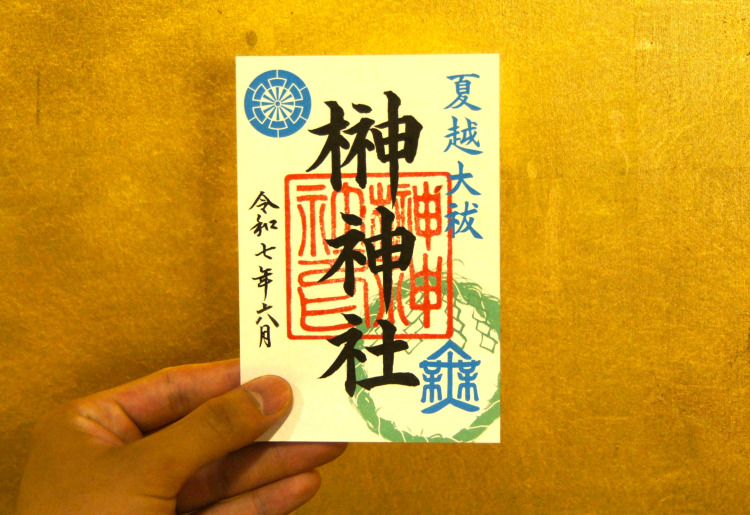 夏越大祓
榊神社
令和七年六月